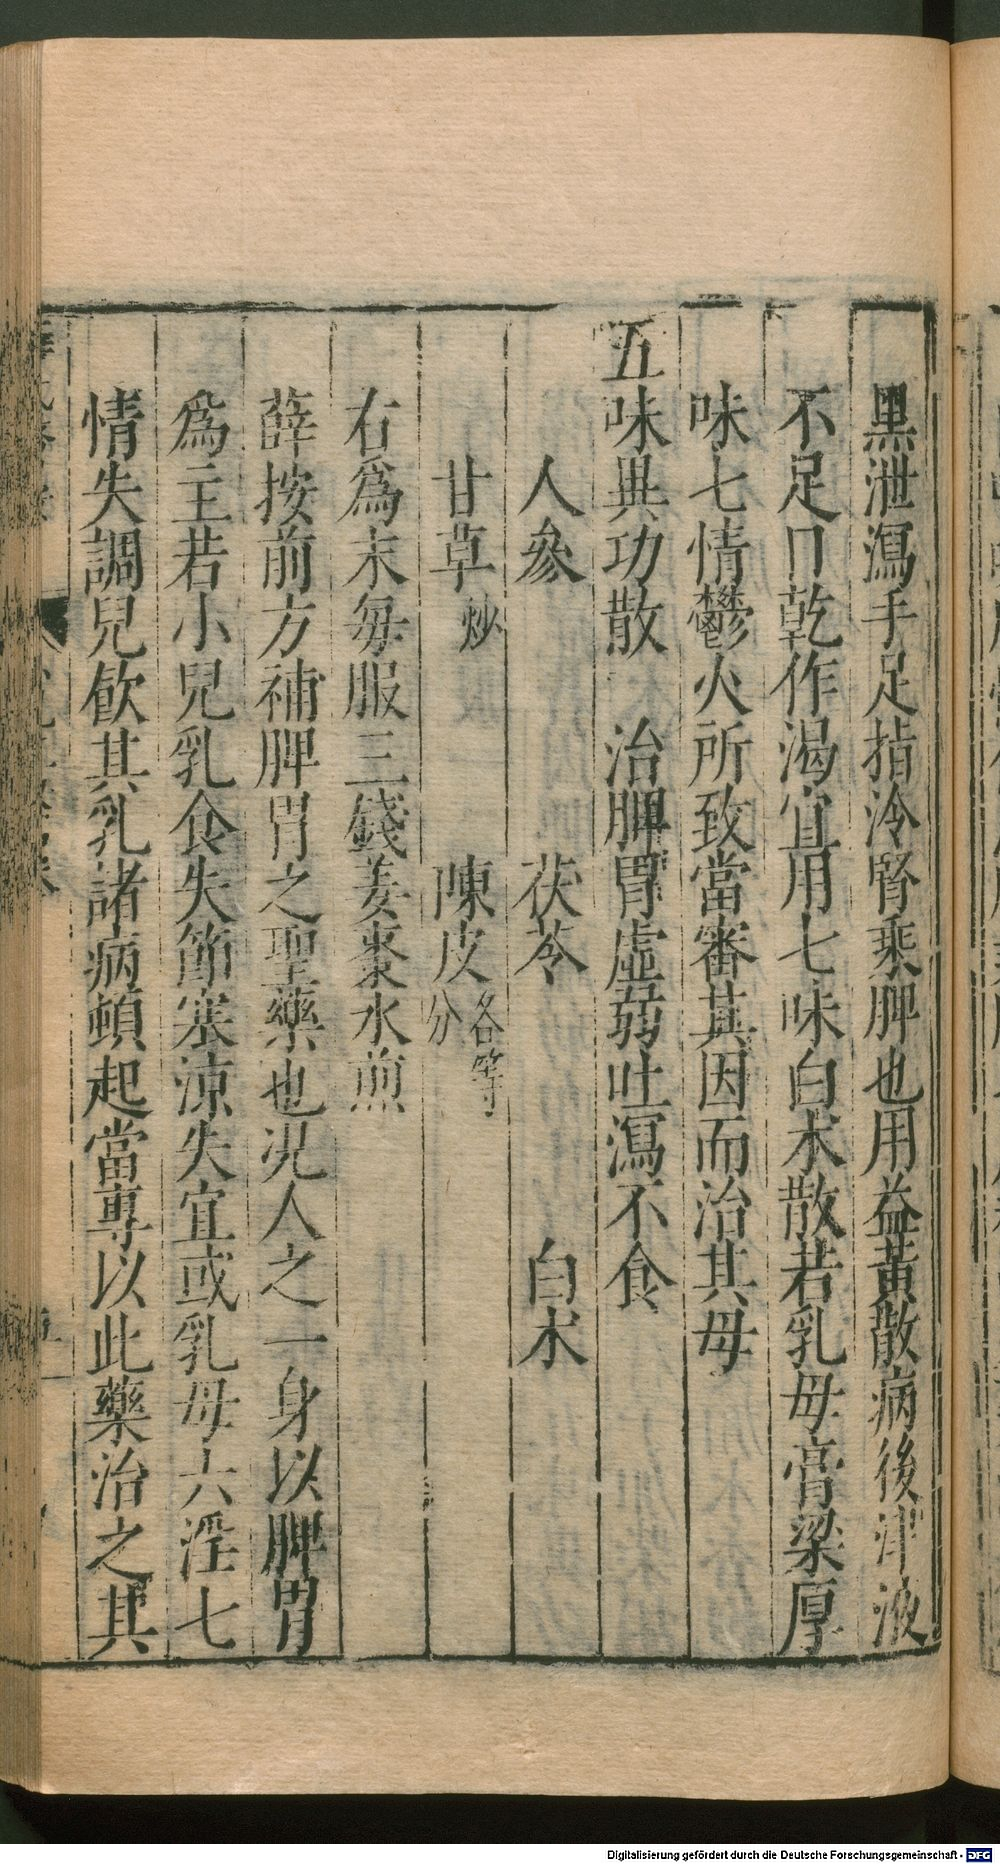 黑泄瀉手足指冷腎乘脾也用益黃散病後津液
不足口乾作渴宜用七味白朮散若乳母膏粱厚
味七情鬱火所致當審其因而治其母
五味異功散　治脾胃虛弱吐瀉不食
人參　茯苓　白朮
甘草炒　陳皮各等分
右為末每服三錢姜棗水煎
薛按前方補脾胃之聖藥也况人之一身以脾胃
為主若小兒乳食失節寒涼失宜或乳母六淫七
情失調兒飲其乳諸病頓起當專以此藥治之其
Digitalisierung gefördert durch die Deutsche Forschungsgemeinschaft - DFG